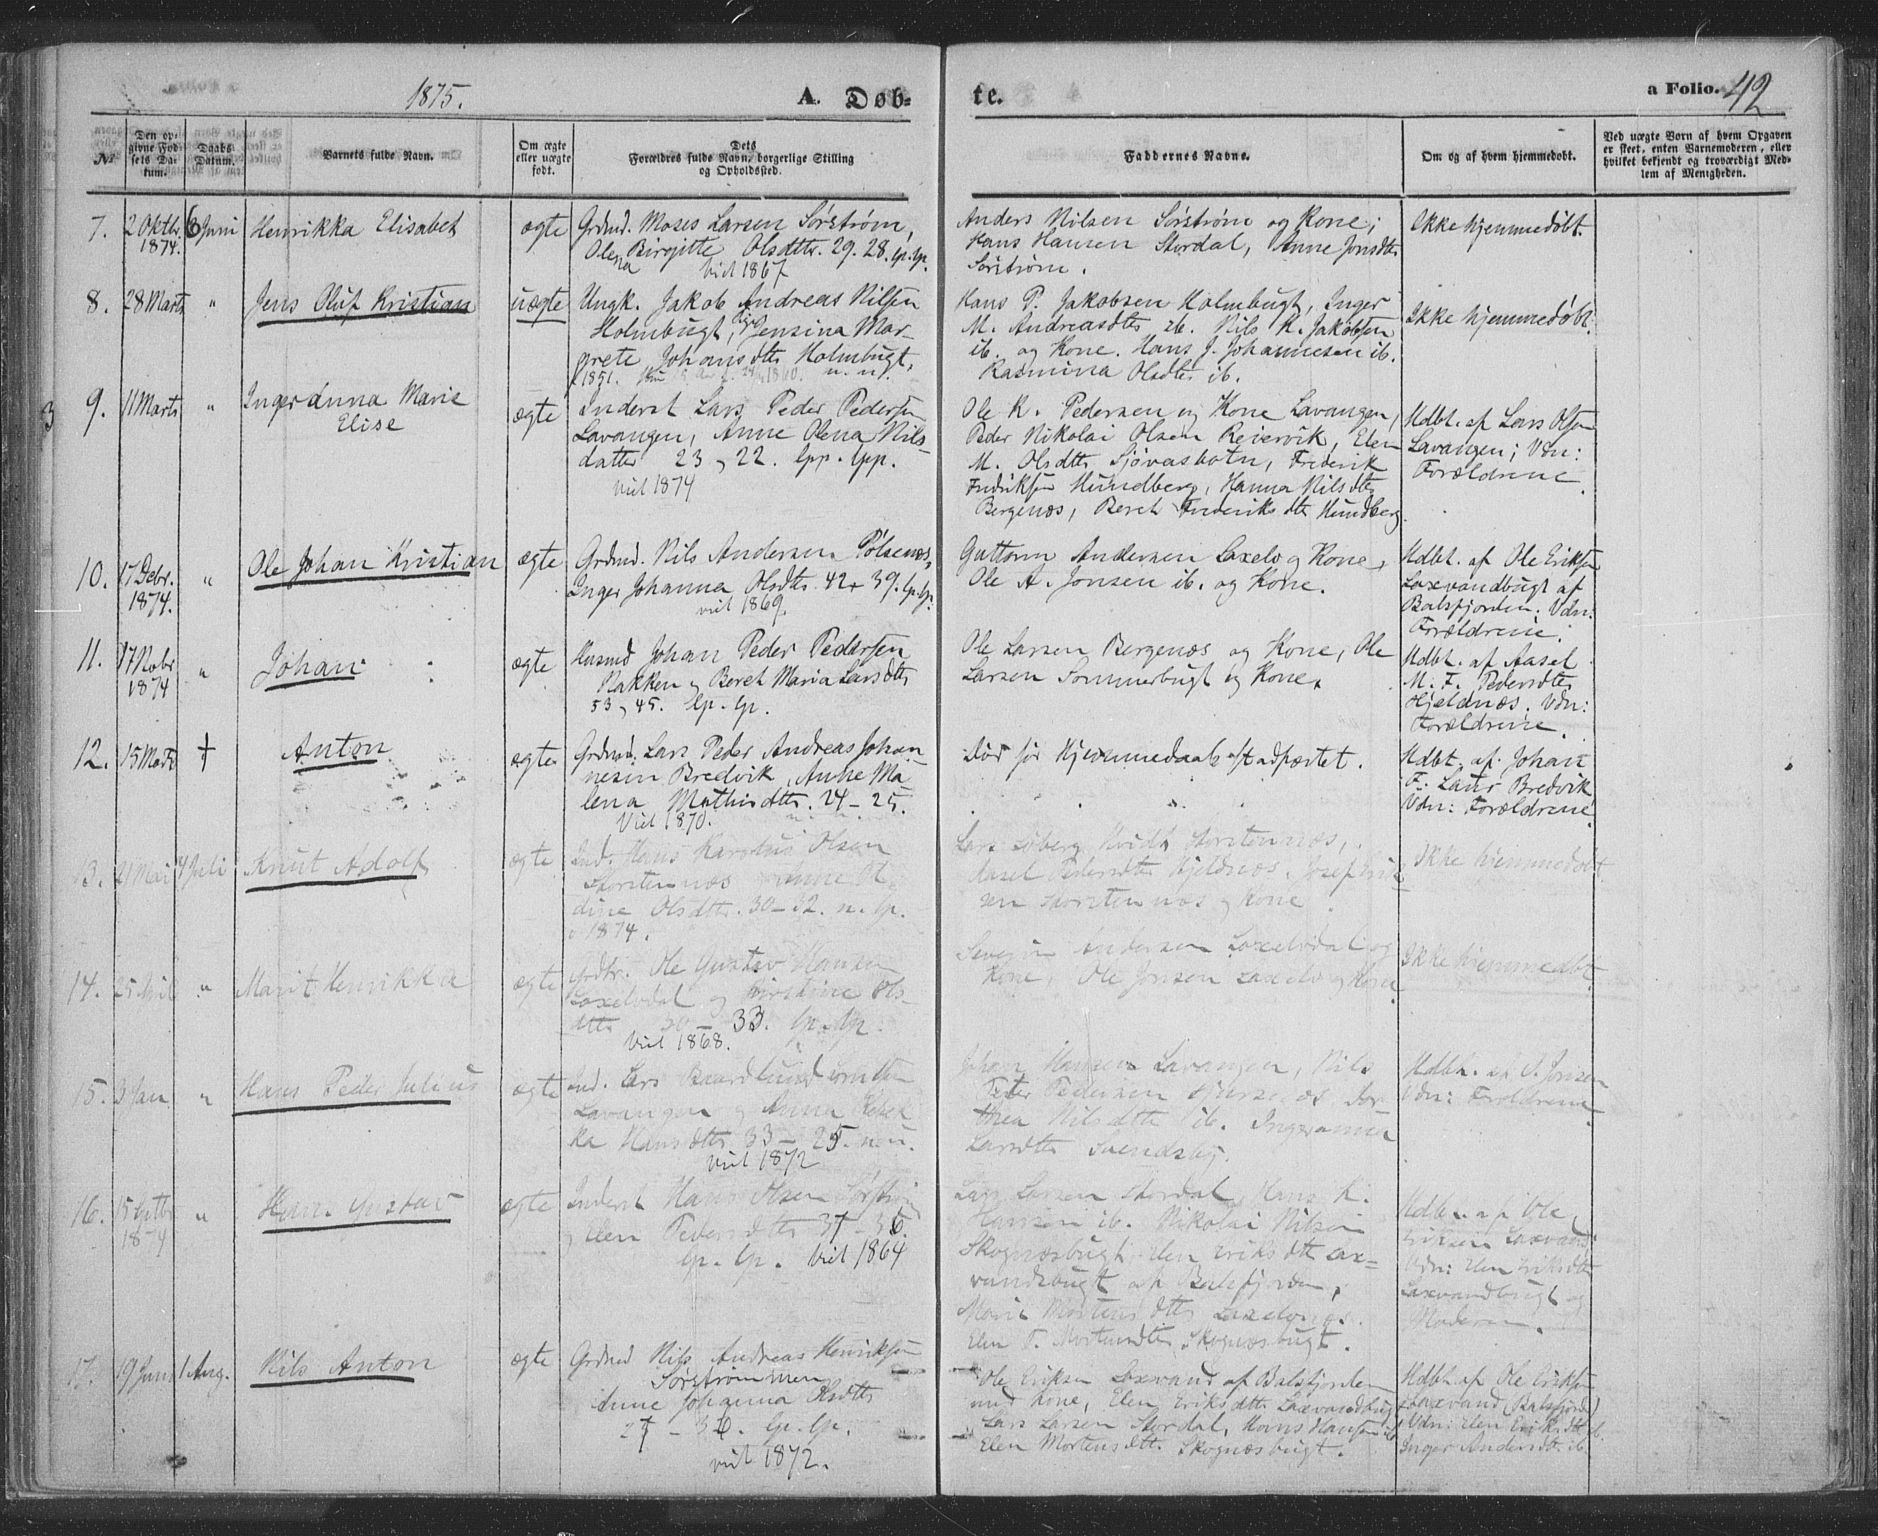 1875.
A. Døb-
te.
a Folio. 42
№
Den op-
givne Fød-
sels Da-
tum.
Daabs
Datum.
Barnets fulde Navn.
Om ægte
eller uægte
født.
Dets
Forældres fulde Navn, borgerlige Stilling
og Opholdssted.
Faddernes Navne.
Om og af hvem hjemmedøbt.
Ved uægte Børn af hvem Opgaven
er skeet, enten Barnemoderen, eller
hvilket bekjendt og troværdigt Med-
lem af Menigheden.
7. 2 Oktbr. 1874. 6 Juni
Henrikka Elisabet
ægte
Grdmd. Moses Larsen Sørstrøm,
Olena Birgitte Olsdtter. 29. 28. lp. lp.
Viet 1867
Anders Nilsen Sørstrøm og Kone;
Hans Hansen Stordal, Anne Jonsdtr
Sørstrøm.
Ikke hjemmedøbt.
8. 28 Marts "
Jens Oluf Kristian
uægte
Ungk. Jakob Andreas Nilsen
Holmbugt, Pige Jensina Mar-
grete Johansdtr Holmbugt,
1851. 1860. n. n.
Hans P. Jakobsen Holmbugt, Inger
M. Andreasdtr ib. Nils K. Jakobsen
ib. og Kone. Hans J. Johannesen ib.
Rasmina Olsdtr ib.
Ikke hjemmedøbt.
3 9. 11 Marts "
Inger Anna Marie
Elise
ægte
Inderst Lars Peder Pedersen
Lavangen, Anne Olena Nils-
datter 23, 22. lpp. lpp.
viet 1874
Ole K. Pedersen og Kone Lavangen,
Peder Nikolai Olsen Reiervik, Elen
M. Olsdtr Sjövasbotn, Frederik
Fredriksen Mundberg, Hanna Nilsdtr
Bergenæs, Beret Frederiksdtr Mundberg
Hdbt. af Lars Olsen
Lavangen; Vdn:
Forældrene.
10. 17 Debr. 1874. "
Ole Johan Kristian
ægte
Grdmd. Nils Andersen Pölsenæs,
Inger Johanna Olsdtr. 42, 39. lp. lp.
viet 1869.
Guttorm Andersen Laxelv og Kone,
Ole A. Jonsen ib. og Kone.
Hdbt. af Ole Eriksen
Laxvandbugt af
Balsfjorden. Vdn:
Forældrene.
11. 17 Nobr 1874 "
Johan
ægte
Husmd Johan Peder Pedersen
Nakken og Beret Maria Larsdtr
53, 45. lp. lp.
Ole Larsen Bergenæs og Kone, Ole
Larsen Sommerbugt og Kone.
Hdbt. af Aasel
M. F. Pedersdtr
Hjeldnæs. Vdn:
Forældrene.
12. 15 Marts †
Anton
ægte
Grdmd. Lars Peder Andreas Johan-
nesen Bredvik, Anne Ma-
lena Mathisdtr. 24 - 25.
Viet 1870. n. n.
Død før Hjemmedaab stadfæstet.
Hdbt. af Johan
F. Laur Bredvik
Vdn: Forældrene.
13. 21 Mai 4 Juli
Knut Adolf
ægte
Ind. Hans Karolus Olsen
Storstennæs Anne
dine Olsdtr. 30 - 32. n. lp.
1874.
Lars Soberg Kvidt Storstennæs,
Aasel Pedersdtr Hjeldnæs. Josef Erik-
sen Storstennæs og Kone.
Ikke hjemmedøbt.
14. 25 April "
Marit Henrikka
ægte
Grdbr. Ole Gustav Hansen
Laxelvdal og Kirstine Ols-
dtr 30 - 33. lp. lp.
Viet 1868.
Severin Andersen Laxelvdal og
Kone, Ole Jonsen Laxelv og Kone
Ikke hjemmedøbt.
15. 3 Jan "
Hans Peder Julius
ægte
Ind. Lars Baardlund
Lavangen og Anna Rebek-
ka Hansdtr 33 - 25. n. n.
viet 1872
Johan Hansen Lavangen, Nils
Peter Pedersen Dor-
thea Nilsdtr ib. Ingeranna
Larsdtr Svendsby.
Hdbt. af J. Jonsen
Vdn: Forældrene.
16. 15 "
Hans Gustav
ægte
Inderst Hans Olsen
og Elen Pedersdtr 37 - 36.
lp. lp. Viet 1864
Lars Larsen Stordal, Hans K.
Hansen ib. Nikolai Nilsen
Skognæsbugt. Elen Eriksdtr Lax-
vandsbugt af Balsfjorden,
Marit Mortensdtr Laxelvnæs.
Elen P. Mortensdtr Skognæsbugt.
Hdbt. af Ole
Eriksen Laxvand.
Vdn: Elen Eriksdtr
Laxvandbugt og
Moderen.
17. 19 Juni 1 Aug.
Nils Anton
ægte
Grdmd Nils Andreas Henriksen
Sørstrømmen
Anne Johanna Olsdtr
27 - 36. lp. lp.
viet 1872.
Ole Eriksen Laxvand af Balsfjorden
med Kone, Elen Eriksdtr Laxvandbugt
Lars Larsen Stordal, Hans Hansen ib
Elen Mortensdtr. Skognæsbugt.
Hdbt. af Ole Eriksen
Laxvand (Balsfjorden)
Vdn: Elen Eriksdtr ib.
Inger Andersdtr. ib.